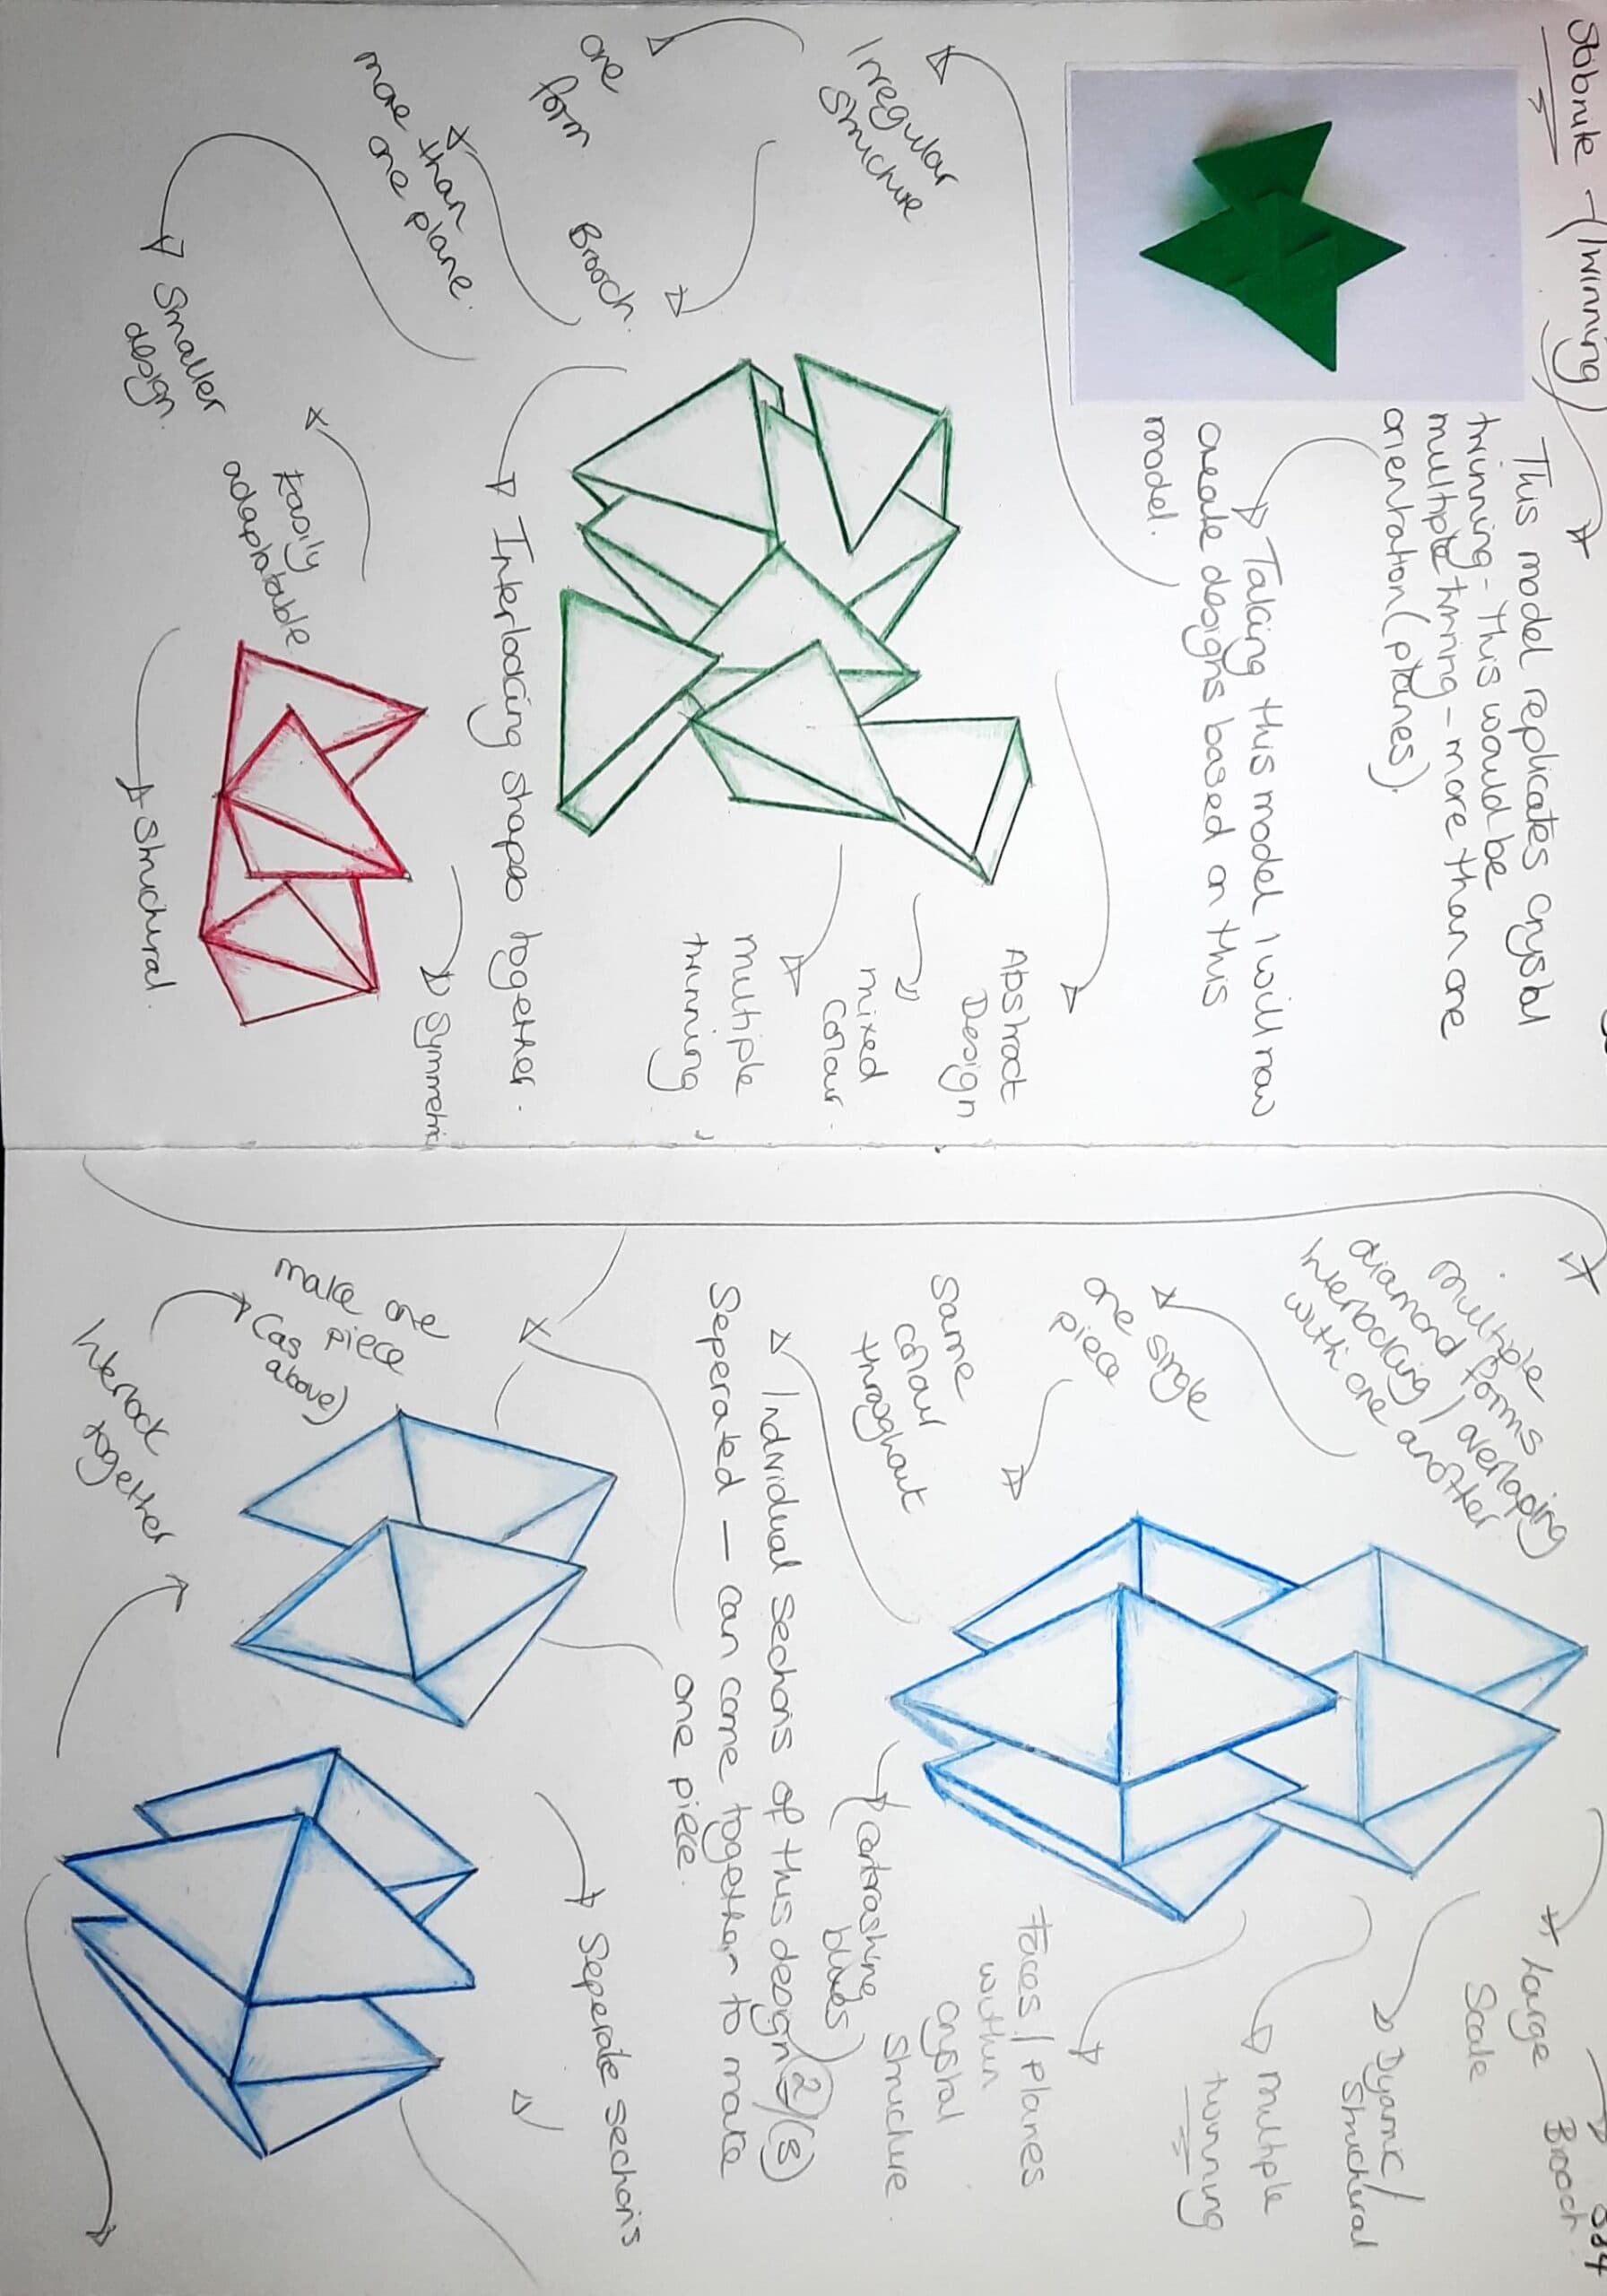 Stibnite - (Twinning)
This model replicates crystal
twinning - this would be
multiple twinning - more than one
orientation (planes).
Taking this model I will now
create designs based on this
model.
Irregular
Structure
one
form
Brooch.
more than
one plane.
Abstract
Design
mixed
colour.
multiple
twinning
Interlocking shapes together.
Smaller
design.
Easily
adaptatable
Symmetric
Structural.
multiple
diamond forms
interlocking / overlaping
with one another
one single
piece
Same
colour
throughout
Large
Scale
Brooch
Dyamic/
Structural
multiple
twinning
Faces / planes
within
crystal
structure
(Contrashing
blues)
Individual sections of this design (2)(3)
Seperated - can come together to make
one piece.
make one
piece
(as
above)
Interlock
together
Seperate sections